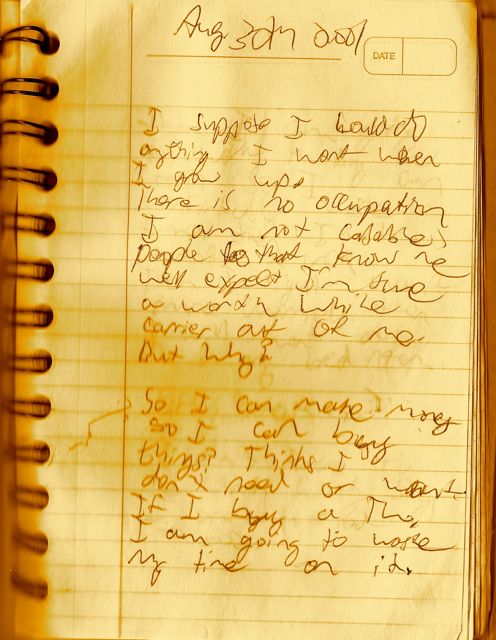 Aug 30th 2001
DATE
I suppose I could do
anything I want when
I grow up.
There is no occupation
I am not capable
people that know me
well expect I'm sure
a worth while
carrier out of me.
But why?
So I can make money
So I can buy
things? Things I
don't need or want
If I buy a
I am going to waste
my time on it.